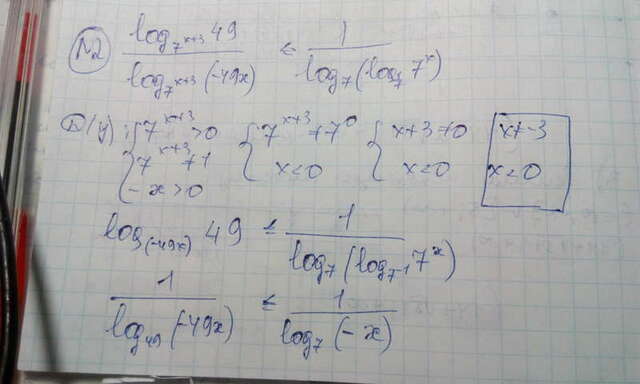 №2 log_{7^{x+3}} 49 / log_{7^{x+3}} (-49x) ≤ 1 / log_7 (log_{1/7} 7^x)
D(y): { 7^{x+3} > 0 { 7^{x+3} ≠ 7^0 { x+3 ≠ 0 x ≠ -3
7^{x+3} ≠ 1 x < 0 x < 0 x < 0
-x > 0
log_{(-49x)} 49 ≤ 1 / log_7 (log_{7^{-1}} 7^x)
1 / log_{49} (-49x) ≤ 1 / log_7 (-x)